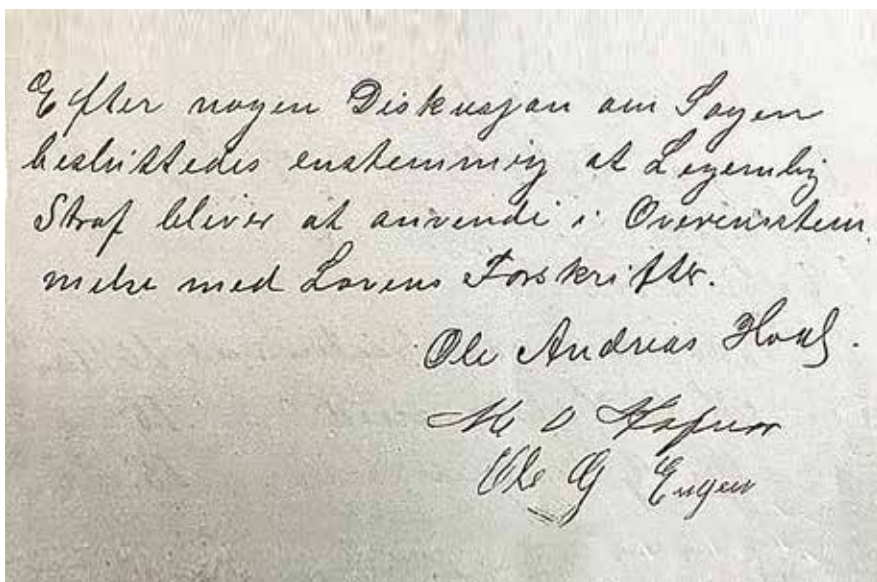 Efter nogen Diskusjon om Sagen
besluttedes enstemmig at Legemlig
Straf bliver at anvende i Overensstem
melse med Lovens Forskrifter.
Ole Andreas
M O
Ole G Engen